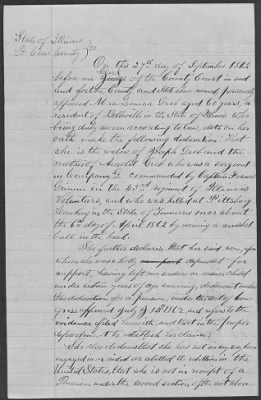 State of Illinois
St Clair County } ss.
On this 27th day of September 1862
before me Clerk of the County Court in and
and for the County and State above named personally
appeared Maria Louisa Grob aged 60 years, a
resident of Belleville in the State of Illinois who
being duly sworn according to law, doth on her
oath make the following declaration that
she is the widow of Joseph Grob and the
mother of Arnold Grob who was a sergeant
in Company commanded by Captain Francis
Grimm in the 43rd regiment of Illinois
Volunteers, and who was killed at Pittsburg
Landing in the State of Tennessee on or about the
6th day of April 1862 by receiving a musket
ball in the head.
She further declares that her said son, upon
whom she was wholly dependent for
support, having left no widow or minor child
under sixteen years of age surviving, declarant makes
this declaration for a pension under the act of Con-
gress approved July 14th 1862, and refers to the
evidence filed herewith, and that in the proper
department to establish her claim.
She also declares that she has not in any way been
engaged in or aided or abetted the rebellion in the
United States, that she is not in receipt of a
Pension under the second section of the act above